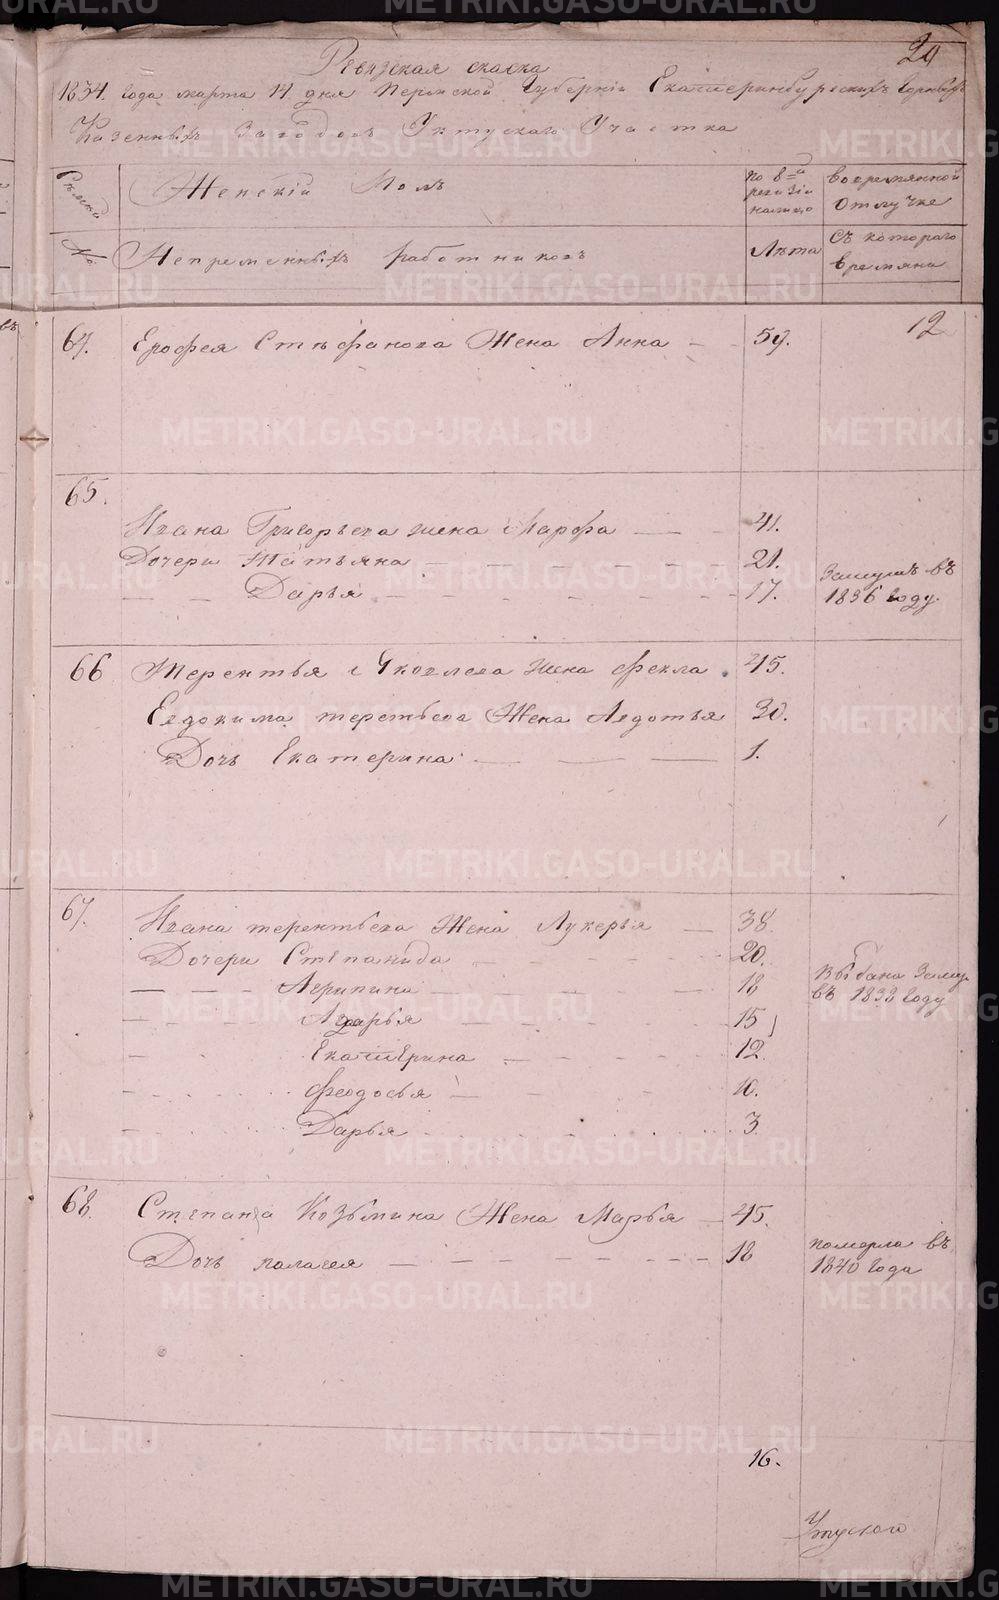 29
Ревизская скаска
1834. года марта 14 дня Пермской Губернiи Екатеринбургскихъ Горныхъ
Казенныхъ Заводовъ Уктускаго Участка
Семей | Женскiй Полъ | по 8й ревизiи налицо | во временной отлучке
№ | Непременныхъ работниковъ | Лѣта | съ котораго времяни
12
Ерофея Стефанова Жена Анна — 59.
65.
Ивана Григорьева жена Марфа — 41.
Дочери Татьяна — 21.
— Дарья — 17. Замужъ въ
1836 году.
66 Терентья Яковлева жена Фекла 45.
Евдокима терентьева Жена Авдотья 30.
Дочь Екатерина — 1.
67. Ивана терентьева Жена Лукерья — 38.
Дочери Степанида — 20.
— Агрипина — 18 выбана Заму
въ 1832 году
— Дарья — 15
— Екатерина — 12.
— Феодосья — 10.
— Дарья — 3
68. Степана Козьмина Жена Марья — 45.
Дочь палагея — 18 померла въ
1840 года
16.
METRIKI.GASO-URAL.RU